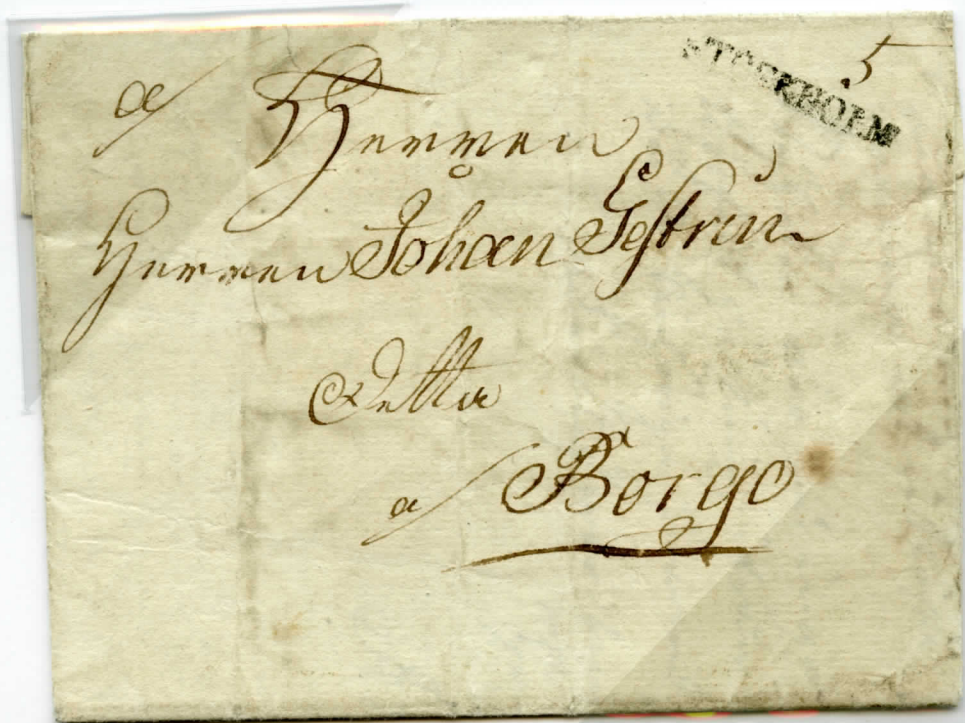 STOCKHOLM
5
a/ Herren
Herren Johan Gestrin
a/ Borgo